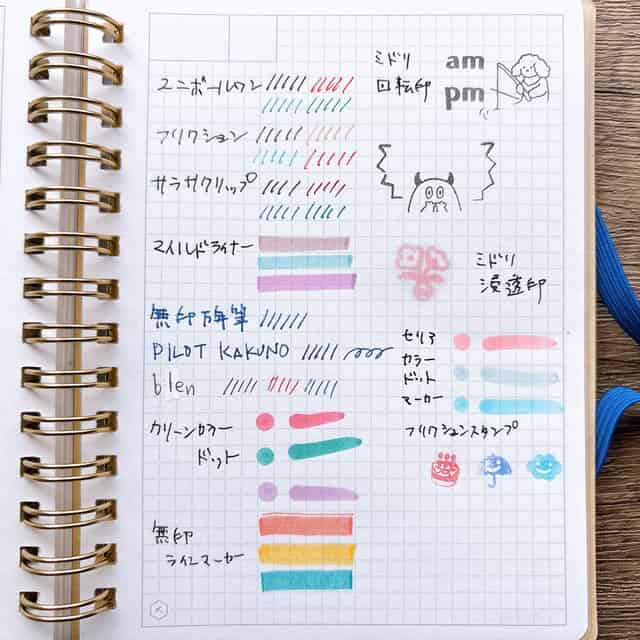 ユニボールワン
フリクション
サラサクリップ
マイルドライナー
無印万年筆
PILOT KAKUNO
blen
クリーンカラー
ドット
無印
ラインマーカー
ミドリ
回転印
am
pm
ミドリ
浸透印
セリア
カラー
ドット
マーカー
フリクションスタンプ